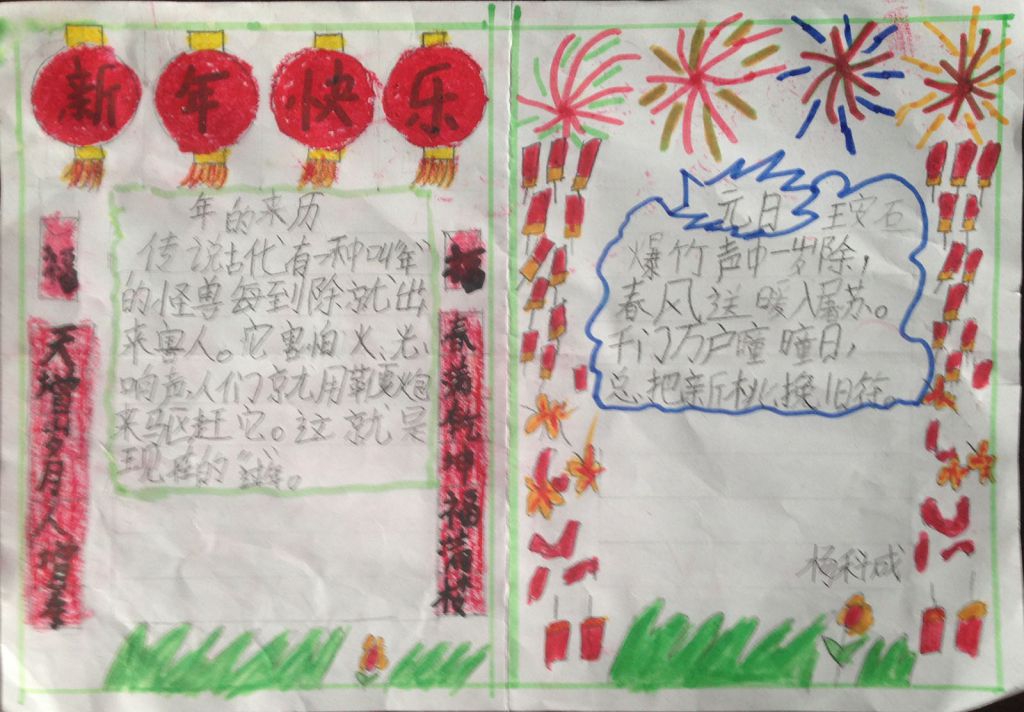 新年快乐
福
天增岁月人增寿
年的来历
传说古代有一种叫"年"
的怪兽每到除就出
来害人。它害怕火、光、
响声,人们就用鞭炮
来驱赶它。这就是
现在的
福
春满乾坤福满楼
元日 王安石
爆竹声中一岁除,
春风送暖入屠苏。
千门万户瞳瞳日,
总把新桃换旧符。
杨科成